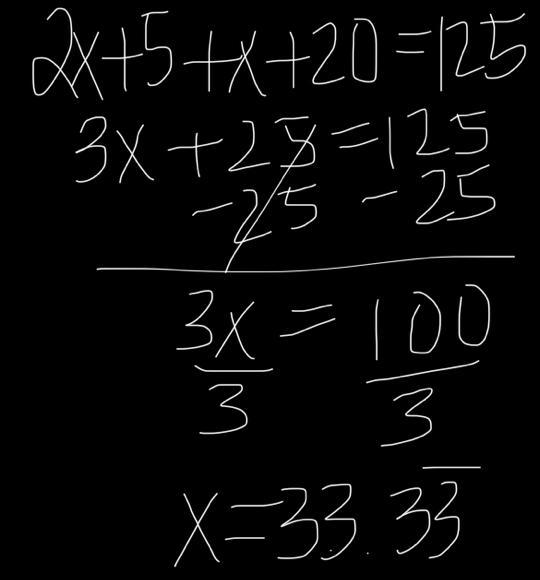 2x+5+x+20=125
3x+25=125
-25 -25
3x = 100
3 3
x=33.33̅